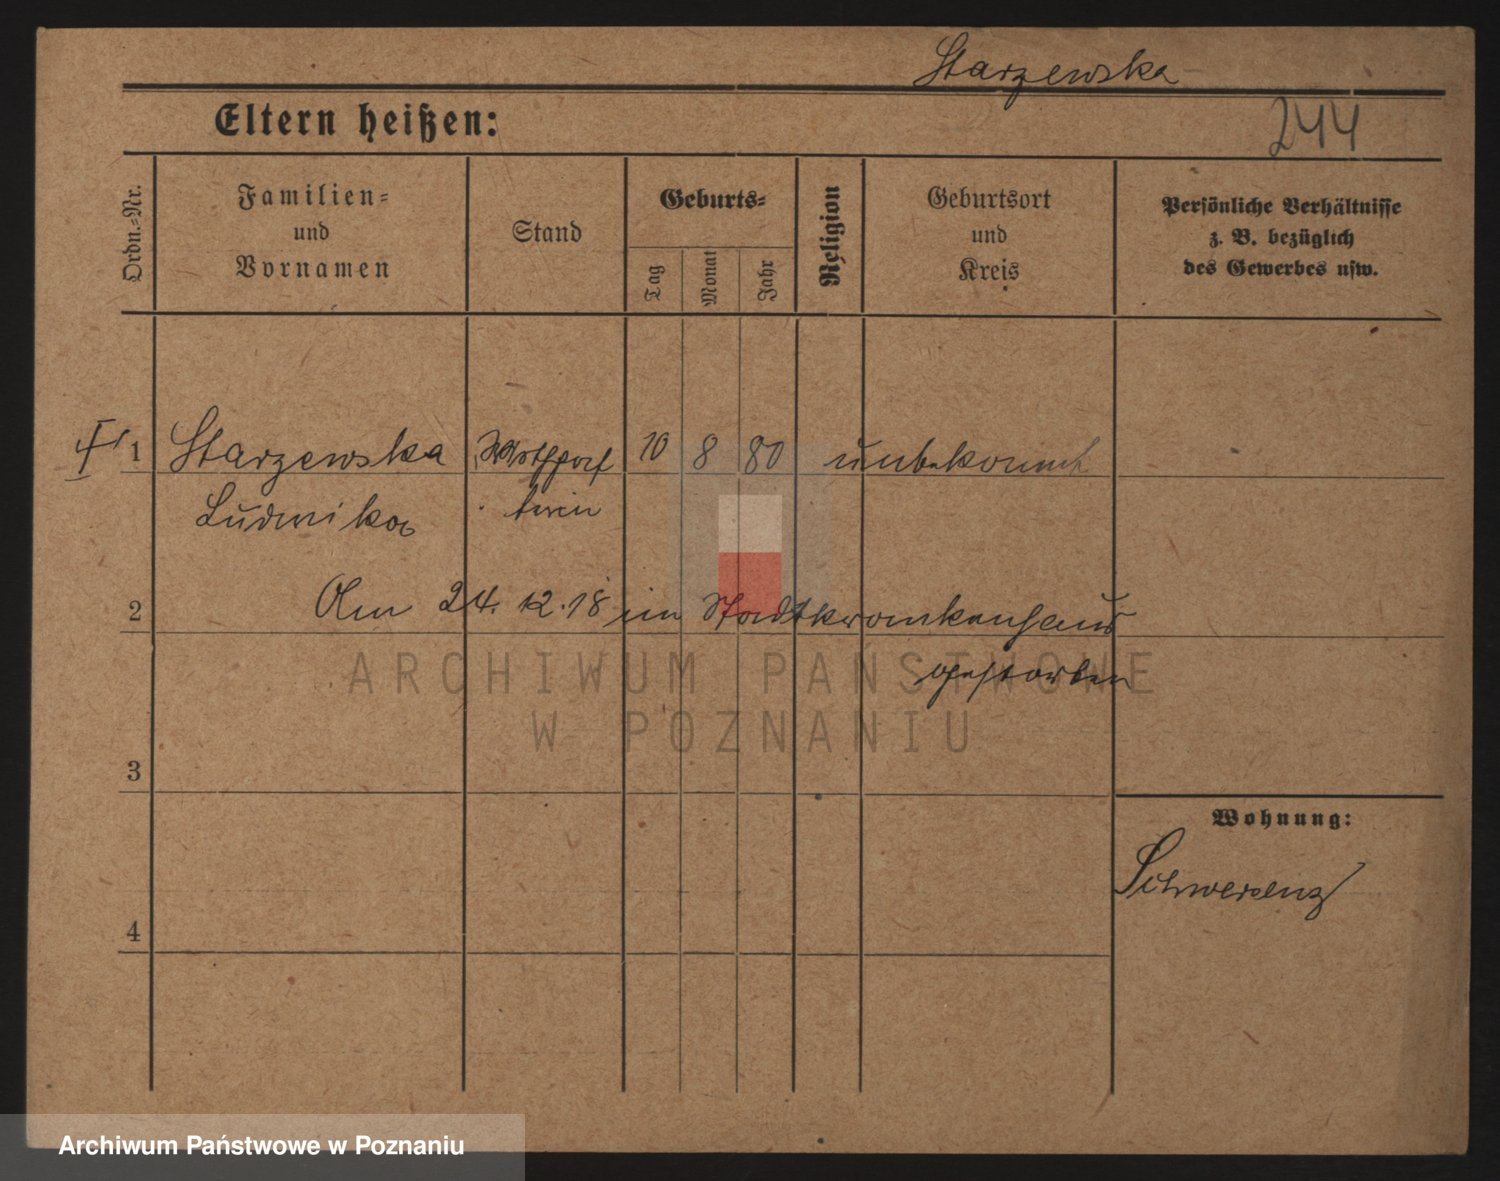 Starzewska
Eltern heißen:
244
Ordn.-Nr.
Familien-
und
Vornamen
Stand
Geburts-
Tag
Monat
Jahr
Religion
Geburtsort
und
Kreis
Persönliche Verhältnisse
z. B. bezüglich
des Gewerbes usw.
1 Starzewska 10 8 80 unbekannt
Ludwika
2 Am 24. 12. 18 im Stadtkrankenhaus
gestorben
ARCHIWUM PAŃSTWOWE
W POZNANIU
3
Wohnung:
Schwersenz
4
Archiwum Państwowe w Poznaniu